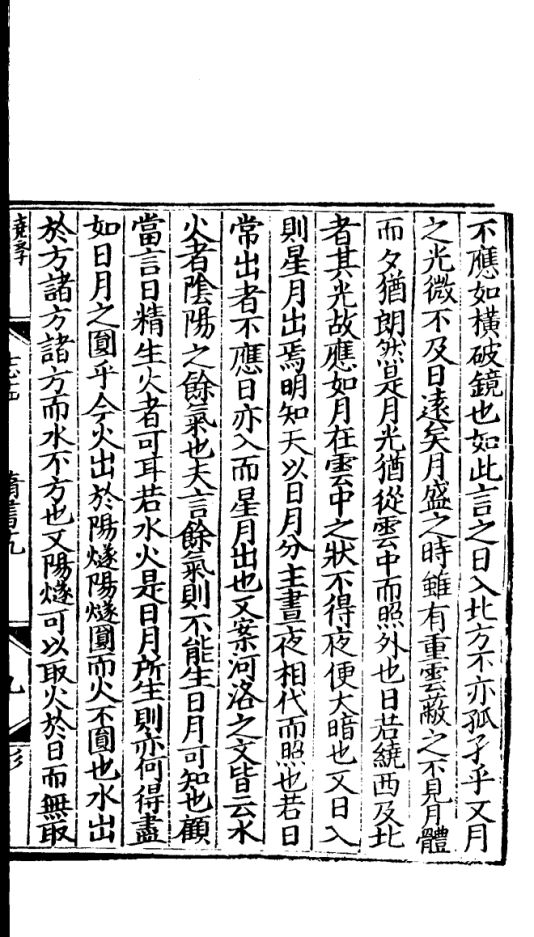 不應如橫破鏡也如此言之日入北方不亦孤孑乎又月
之光微不及日遠矣月盛之時雖有重雲蔽之不見月體
而夕猶朗然是月光猶從雲中而照外也日若繞西及北
者其光故應如月在雲中之狀不得夜便大暗也又日入
則星月出焉明知天以日月分主晝夜相代而照也若日
常出者不應日亦入而星月出也又案河洛之文皆云水
火者陰陽之餘氣也夫言餘氣則不能生日月可知也顧
當言日精生火者可耳若水火是日月所生則亦何得盡
如日月之圓乎今火出於陽燧陽燧圓而火不圓也水出
於方諸方諸方而水不方也又陽燧可以取火於日而無取